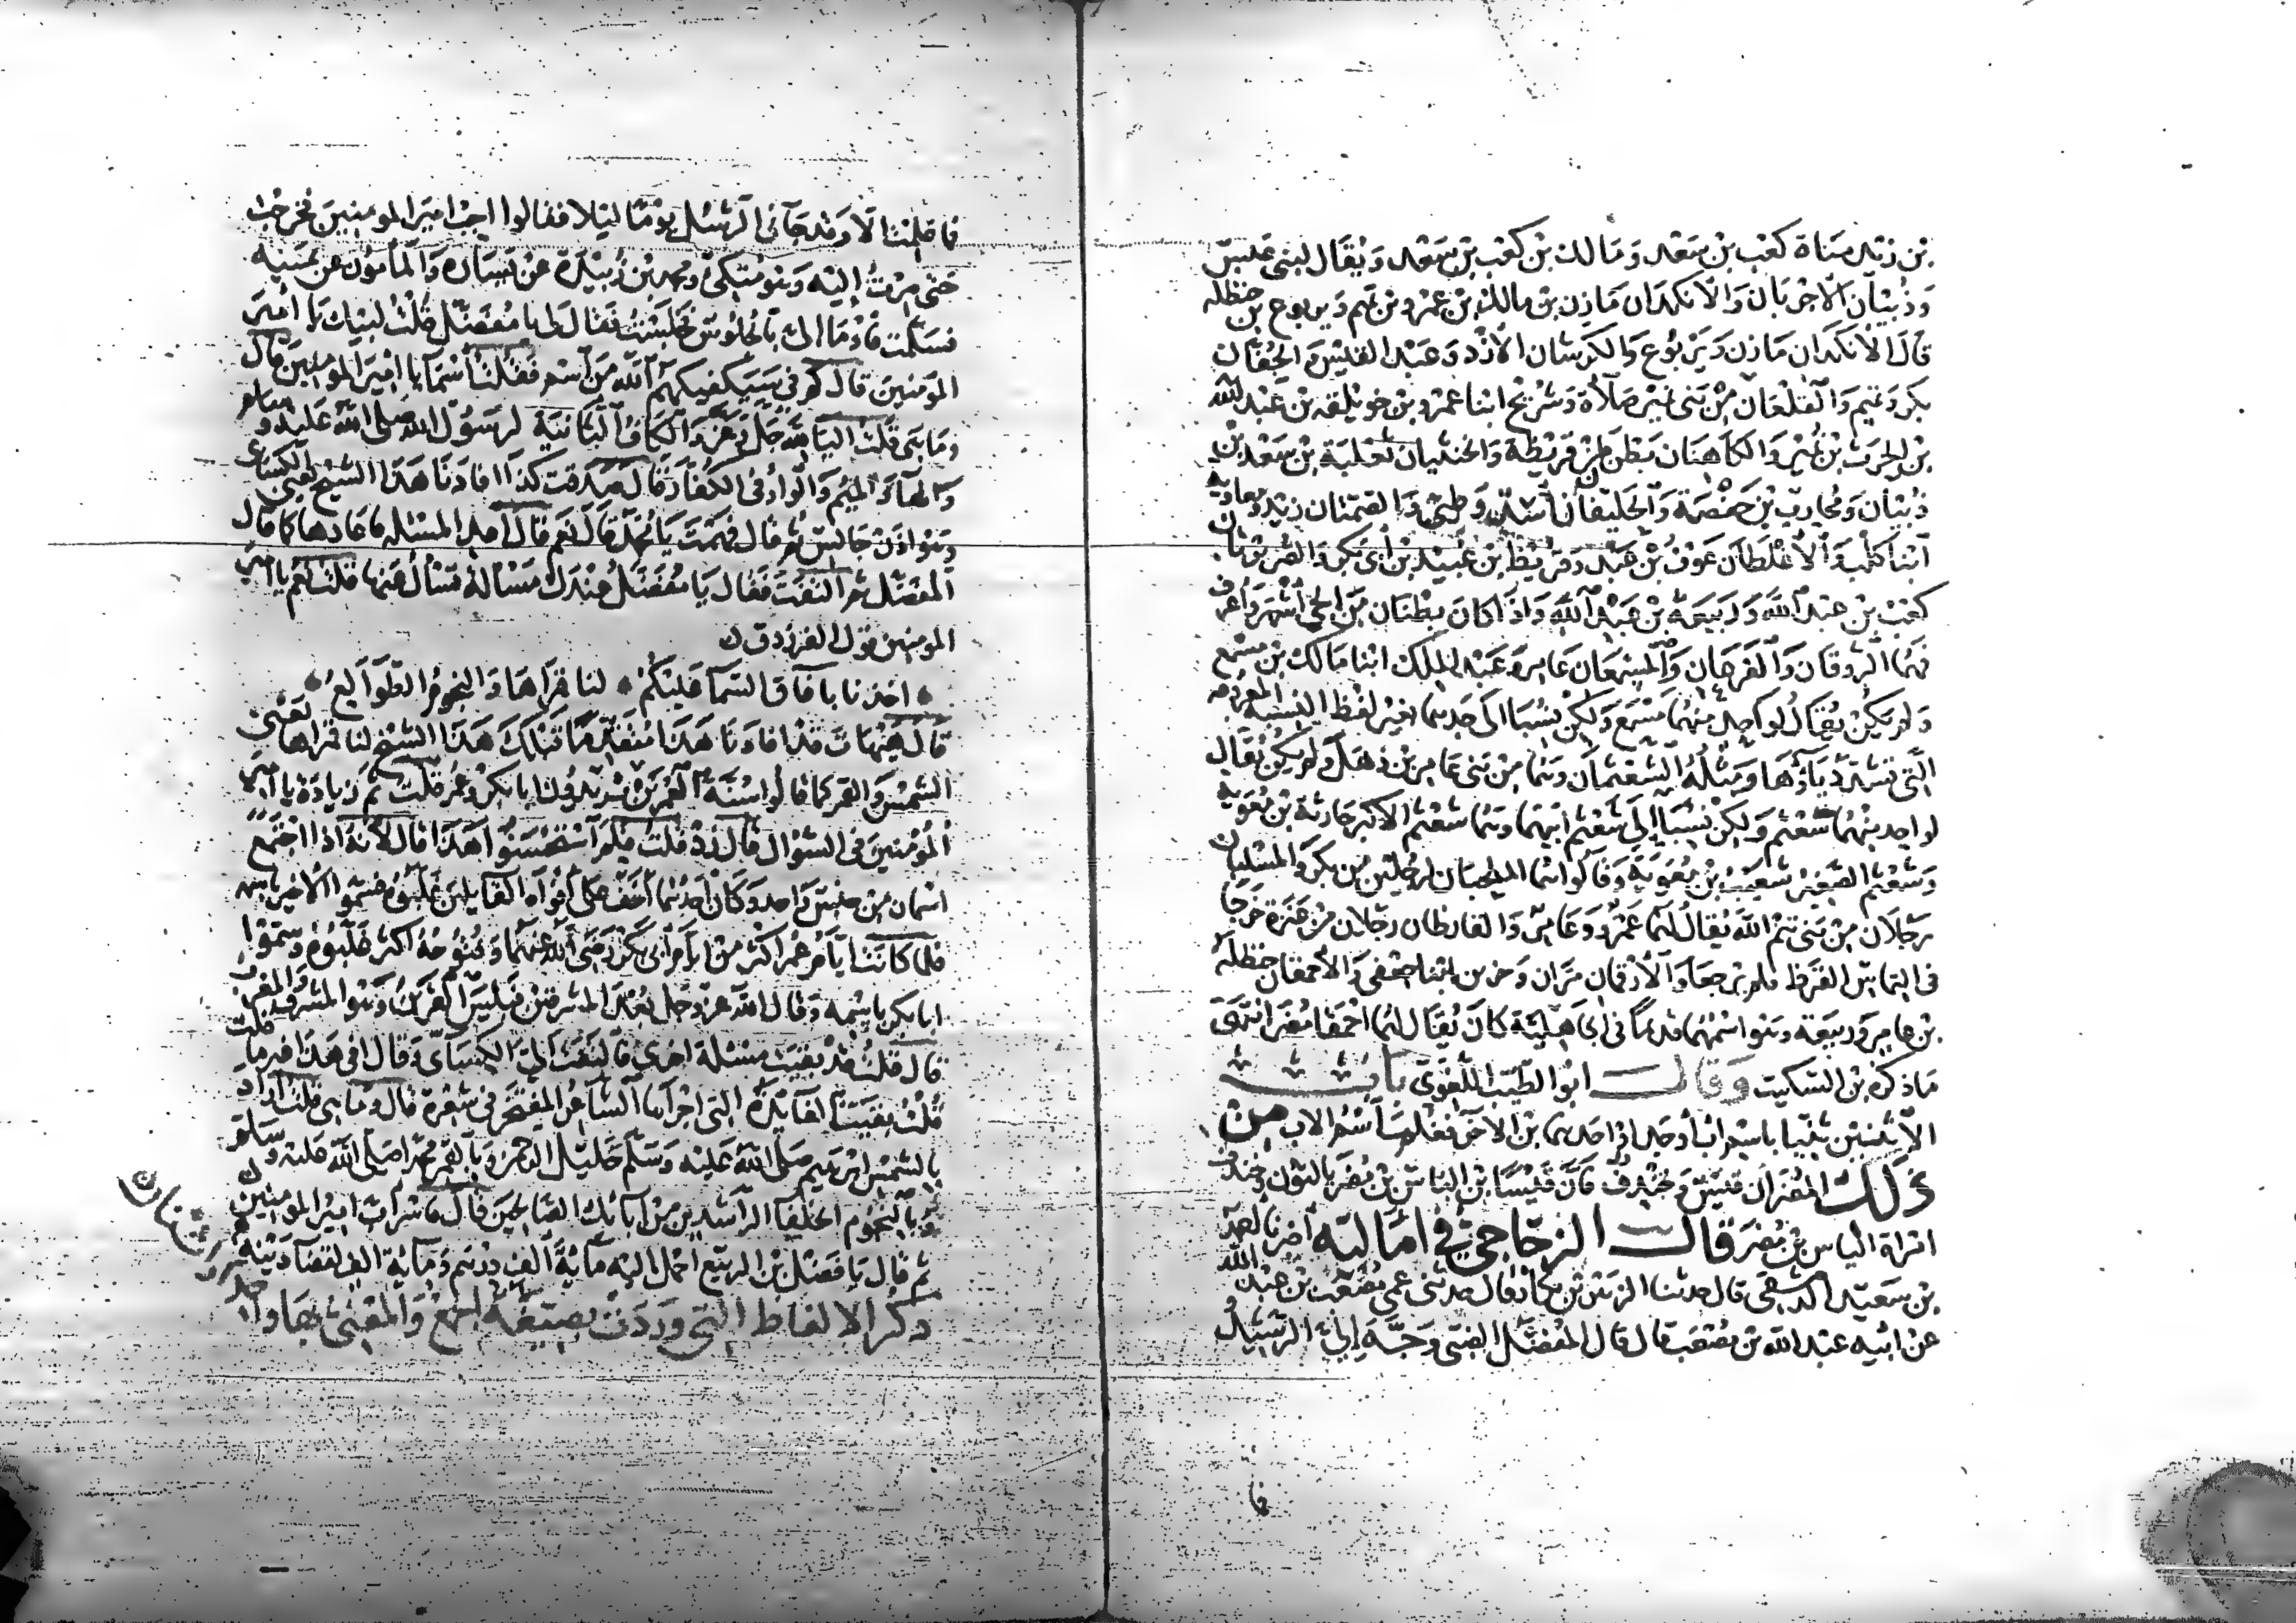 بن زيد مناة كعب بن سعد ومالك بن كعب بن سعد ويقال لبني عبس
وذبيان الاجربان والانكدان مازن بن مالك بن عمرو بن تميم ويربوع بن حنظلة
قال الانكدان مازن ويربوع والكرشان الازد وعبد القيس والجفان
بكر وتميم والقلعان من بني نمير صلاة وشريح ابنا عمرو بن خويلفه بن عبد الله
بن الحرث بن نمير والكاهنان بطن من قريظة والخنثيان ثعلبة بن سعد بن
ذبيان ومحارب بن خصفة والحليفان اسد وطيئ والقتمتان زيد ومعاوية
ابنا كلب والاغلظان عوف بن عبد وقريظ بن عبيد بن ابي بكر والصريرتان
كعب بن عبد الله وربيعة بن عبد الله واذا كان بطنان من الحي اشهر واعرف
فهما الروقان والفرهان والمسمعان عامر وعبد الملك ابنا مالك بن مسمع
ولم يكن يقال لواحد منهما مسمع ولكن نسبا الى جدهما بغير لفظ النسبة المعروفة
التي تشدد ياؤها ومثله الشعثمان وهما من بني عامر بن ذهل ولم يكن يقال
لواحد منهما شعثم ولكن نسبا الى شعثم ابيهما وهما شعثم الاكبر حارثة بن معوية
وشعثم الصغير شعيب بن معوية وقالوا هما الملحبان لرجلين من بكر والمسلبان
رجلان من بني تيم الله يقال لهما عمرو وعامر والقارظان رجلان من عنزة خرجا
في التماس القرظ فلم يرجعا والارقمان مران وحزين ابنا جعفي والاحمقان حنظلة
بن عامر وربيعة وهو اسمهما قديما في الجاهلية كان يقال لهما احمقا مضر انتهى
ما ذكره بن السكيت وقال ابو الطيب اللغوي باب
الاثنين ثنيا باسم اب او جد او احدهما بن الاخر فغلب اسم الاب من
ذلك المضران قيس وخندف فان قيسا بن الناس بن مضر بالنون وخندف
امراة الياس بن مضر قال الزجاجي في اماليه اخبرنا احمد
بن سعيد الدمشقي قال حدثنا الزبير بن بكار قال حدثني عمي مصعب بن عبد الله
عن ابيه عبد الله بن مصعب قال قال المفضل الضبي وجه الي الرشيد
فا
فا علمت الا وقد جآني الرسل يوما ليلا فقالوا اجب امير المومنين فخرجت
حتى صرت اليه وهو متكئ ومحمد بن زبيدة عن يساره والمأمون عن يمينه
فسلمت فاوما الي بالجلوس فجلست فقال لي يا مفضل قلت لبيك يا امير
المومنين قال كم في سيكفيكهم الله من اسم فقلت اسما يا امير المومنين قال
وما هي قلت اليا لله جل وعز والكاف الثانية لرسول الله صلى الله عليه وسلم
والها والميم والواو في الكفار قال صدقت كذا افادنا هذا الشيخ يعني الكسائي
وهو اذن جالس ثم قال فهمت يا محمد قال نعم قال اعد المسئلة فاعادها كما قال
المفضل ثم التفت فقال يا مفضل عندك مسالة تسال عنها قلت نعم يا امير
المومنين قول الفرزدق
اخذنا بافاق السما عليكم لنا قمراها والنجوم الطوالع
قال هيهات قد افادنا هذا متقدما قبلك هذا الشيخ لنا قمراها يعني
الشمس والقمر كما قالوا سنة العمرين يريدون ابا بكر وعمر قلت ثم زيادة يا امير
المومنين في السؤال قال زد قلت فلم استحسنوا هذا قال لانه اذا اجتمع
اسمان من جنس واحد وكان احدهما اخف على افواه القائلين غلبوه فسموا الاخير باسمه
فلما كانت ايام عمر اكثر من ايام ابي بكر رضي الله عنهما وفتوحه اكثر غلبوه وسموا
ابا بكر باسمه وقال الله عز وجل بعد المشرقين فبئس القرين وهو المشرق والمغرب
قال قلت قد بقيت مسئلة اخرى فالتفت الى الكسائي وقال افي هذا غير ما قلت
قلت بقيت الفائدة التي اجراها الشاعر المفتخر في شعره قال وما هي قلت اراد
بالشمس ابرهيم صلى الله عليه وسلم خليل الرحمن وبالقمر محمدا صلى الله عليه وسلم
وبالنجوم الخلفا الراشدين من ابائك الصالحين قال فاشراب امير المومنين
ثم قال يا فضل بن الربيع احمل اليه مائة الف درهم ومائة الف لقضا دينه
ذكر الالفاظ التي وردت بصيغة الجمع والمعني بها واحد
او اثنان